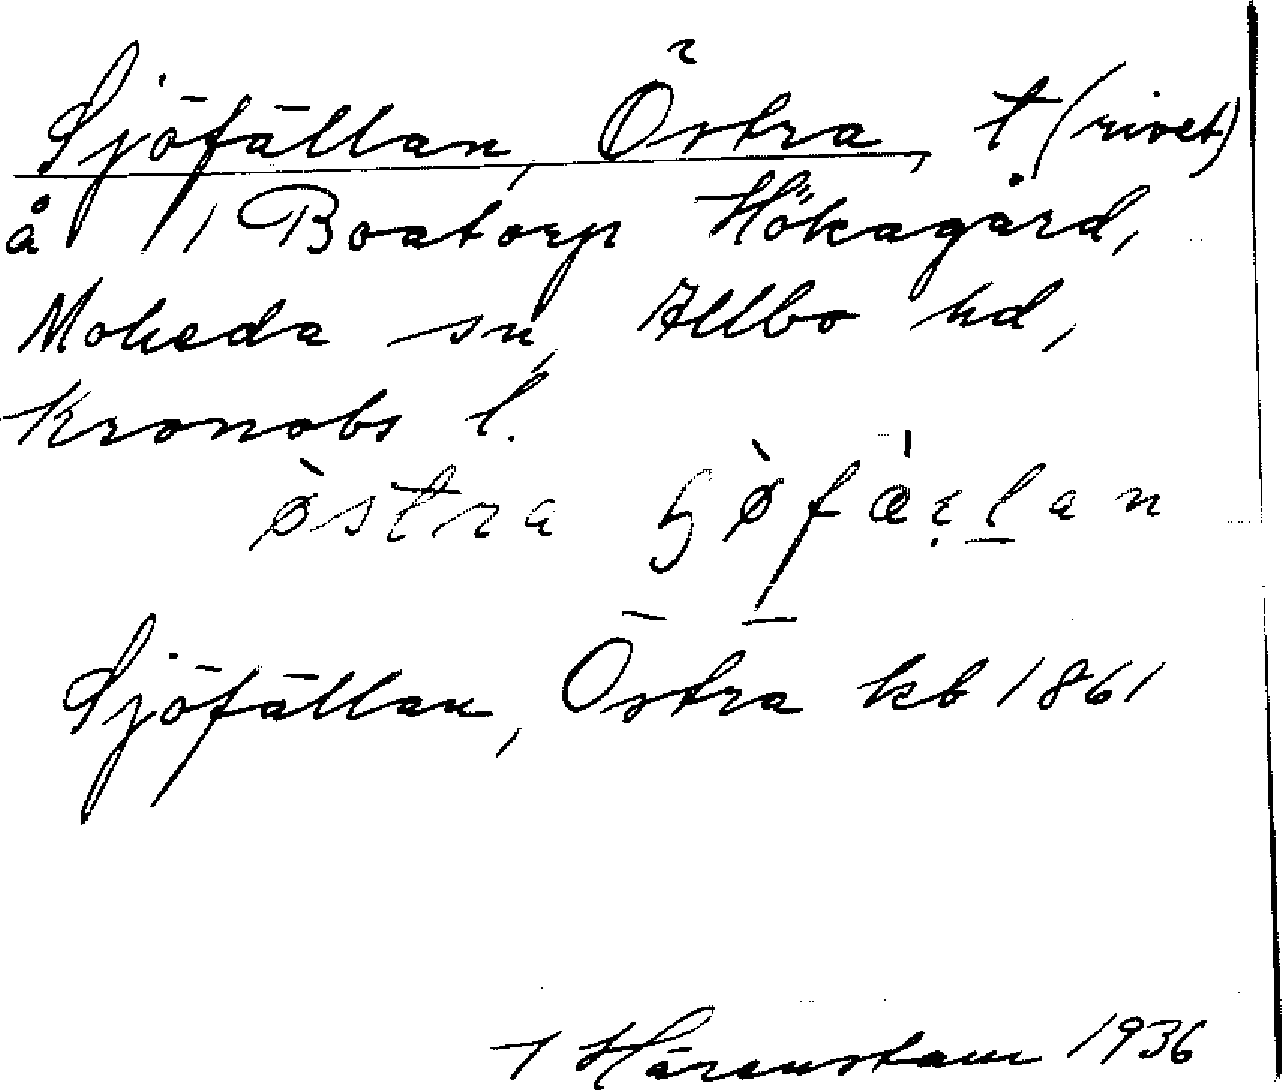 Sjöfällan, Östra, t (rivet)
å 1/1 Boatorp Hökagård,
Moheda sn, Allbo hd,
Kronobs l.
òstra ɧø̀fæ̀l̠an
Sjöfällan, Östra kb 1861
Härenstam 1936